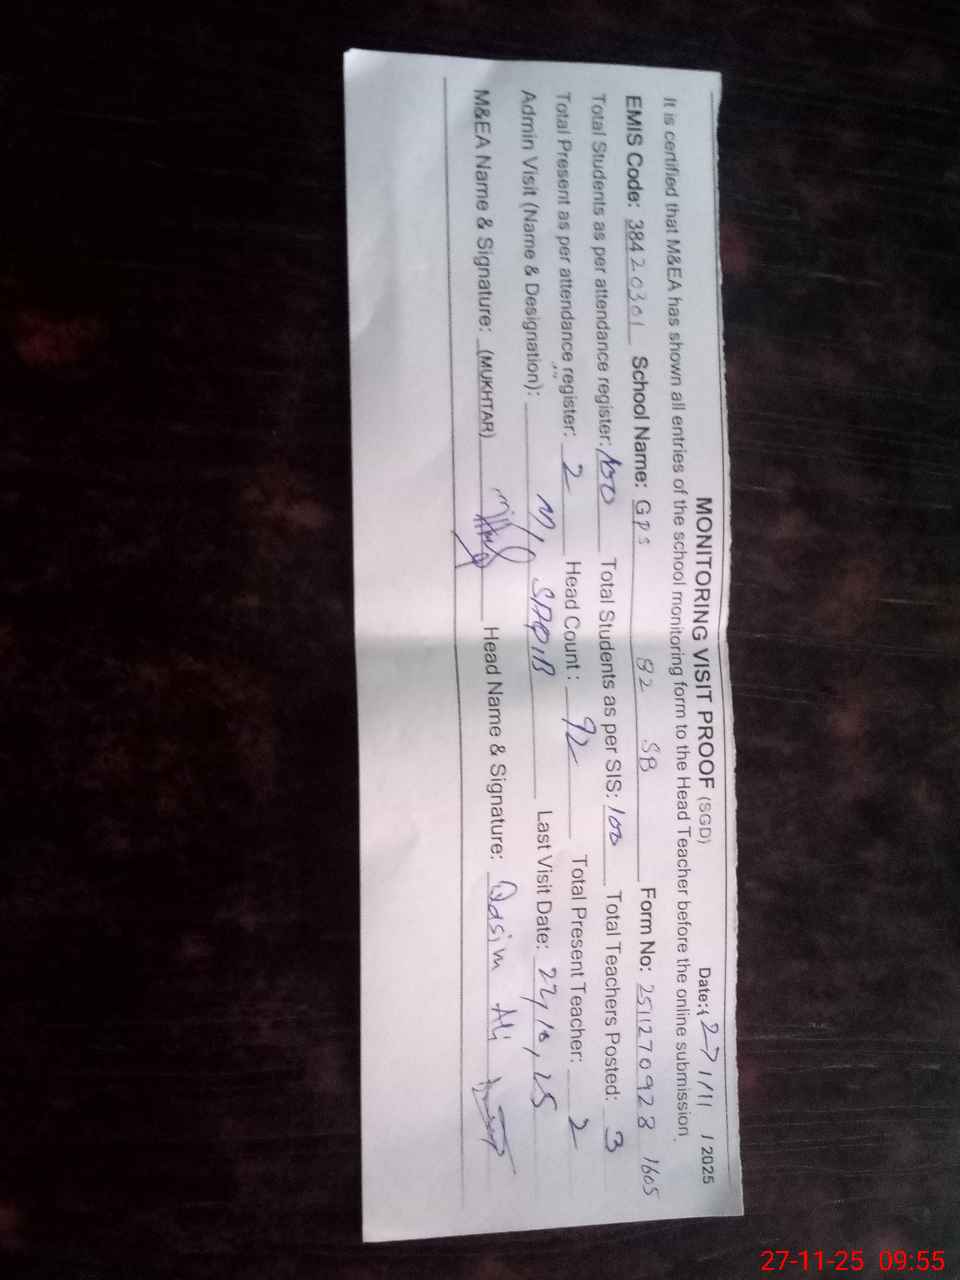 MONITORING VISIT PROOF (SGD) Date: 27/11/2025
It is certified that M&EA has shown all entries of the school monitoring form to the Head Teacher before the online submission.
EMIS Code: 38420301 School Name: Gps 82 SB Form No: 2511270928 1605
Total Students as per attendance register: 100 Total Students as per SIS: 100 Total Teachers Posted: 3
Total Present as per attendance register: 2 Head Count: 92 Total Present Teacher: 2
Admin Visit (Name & Designation): SAQIB Last Visit Date: 22/10/25
M&EA Name & Signature: (MUKHTAR) Head Name & Signature: Qasim Ali
27-11-25 09:55